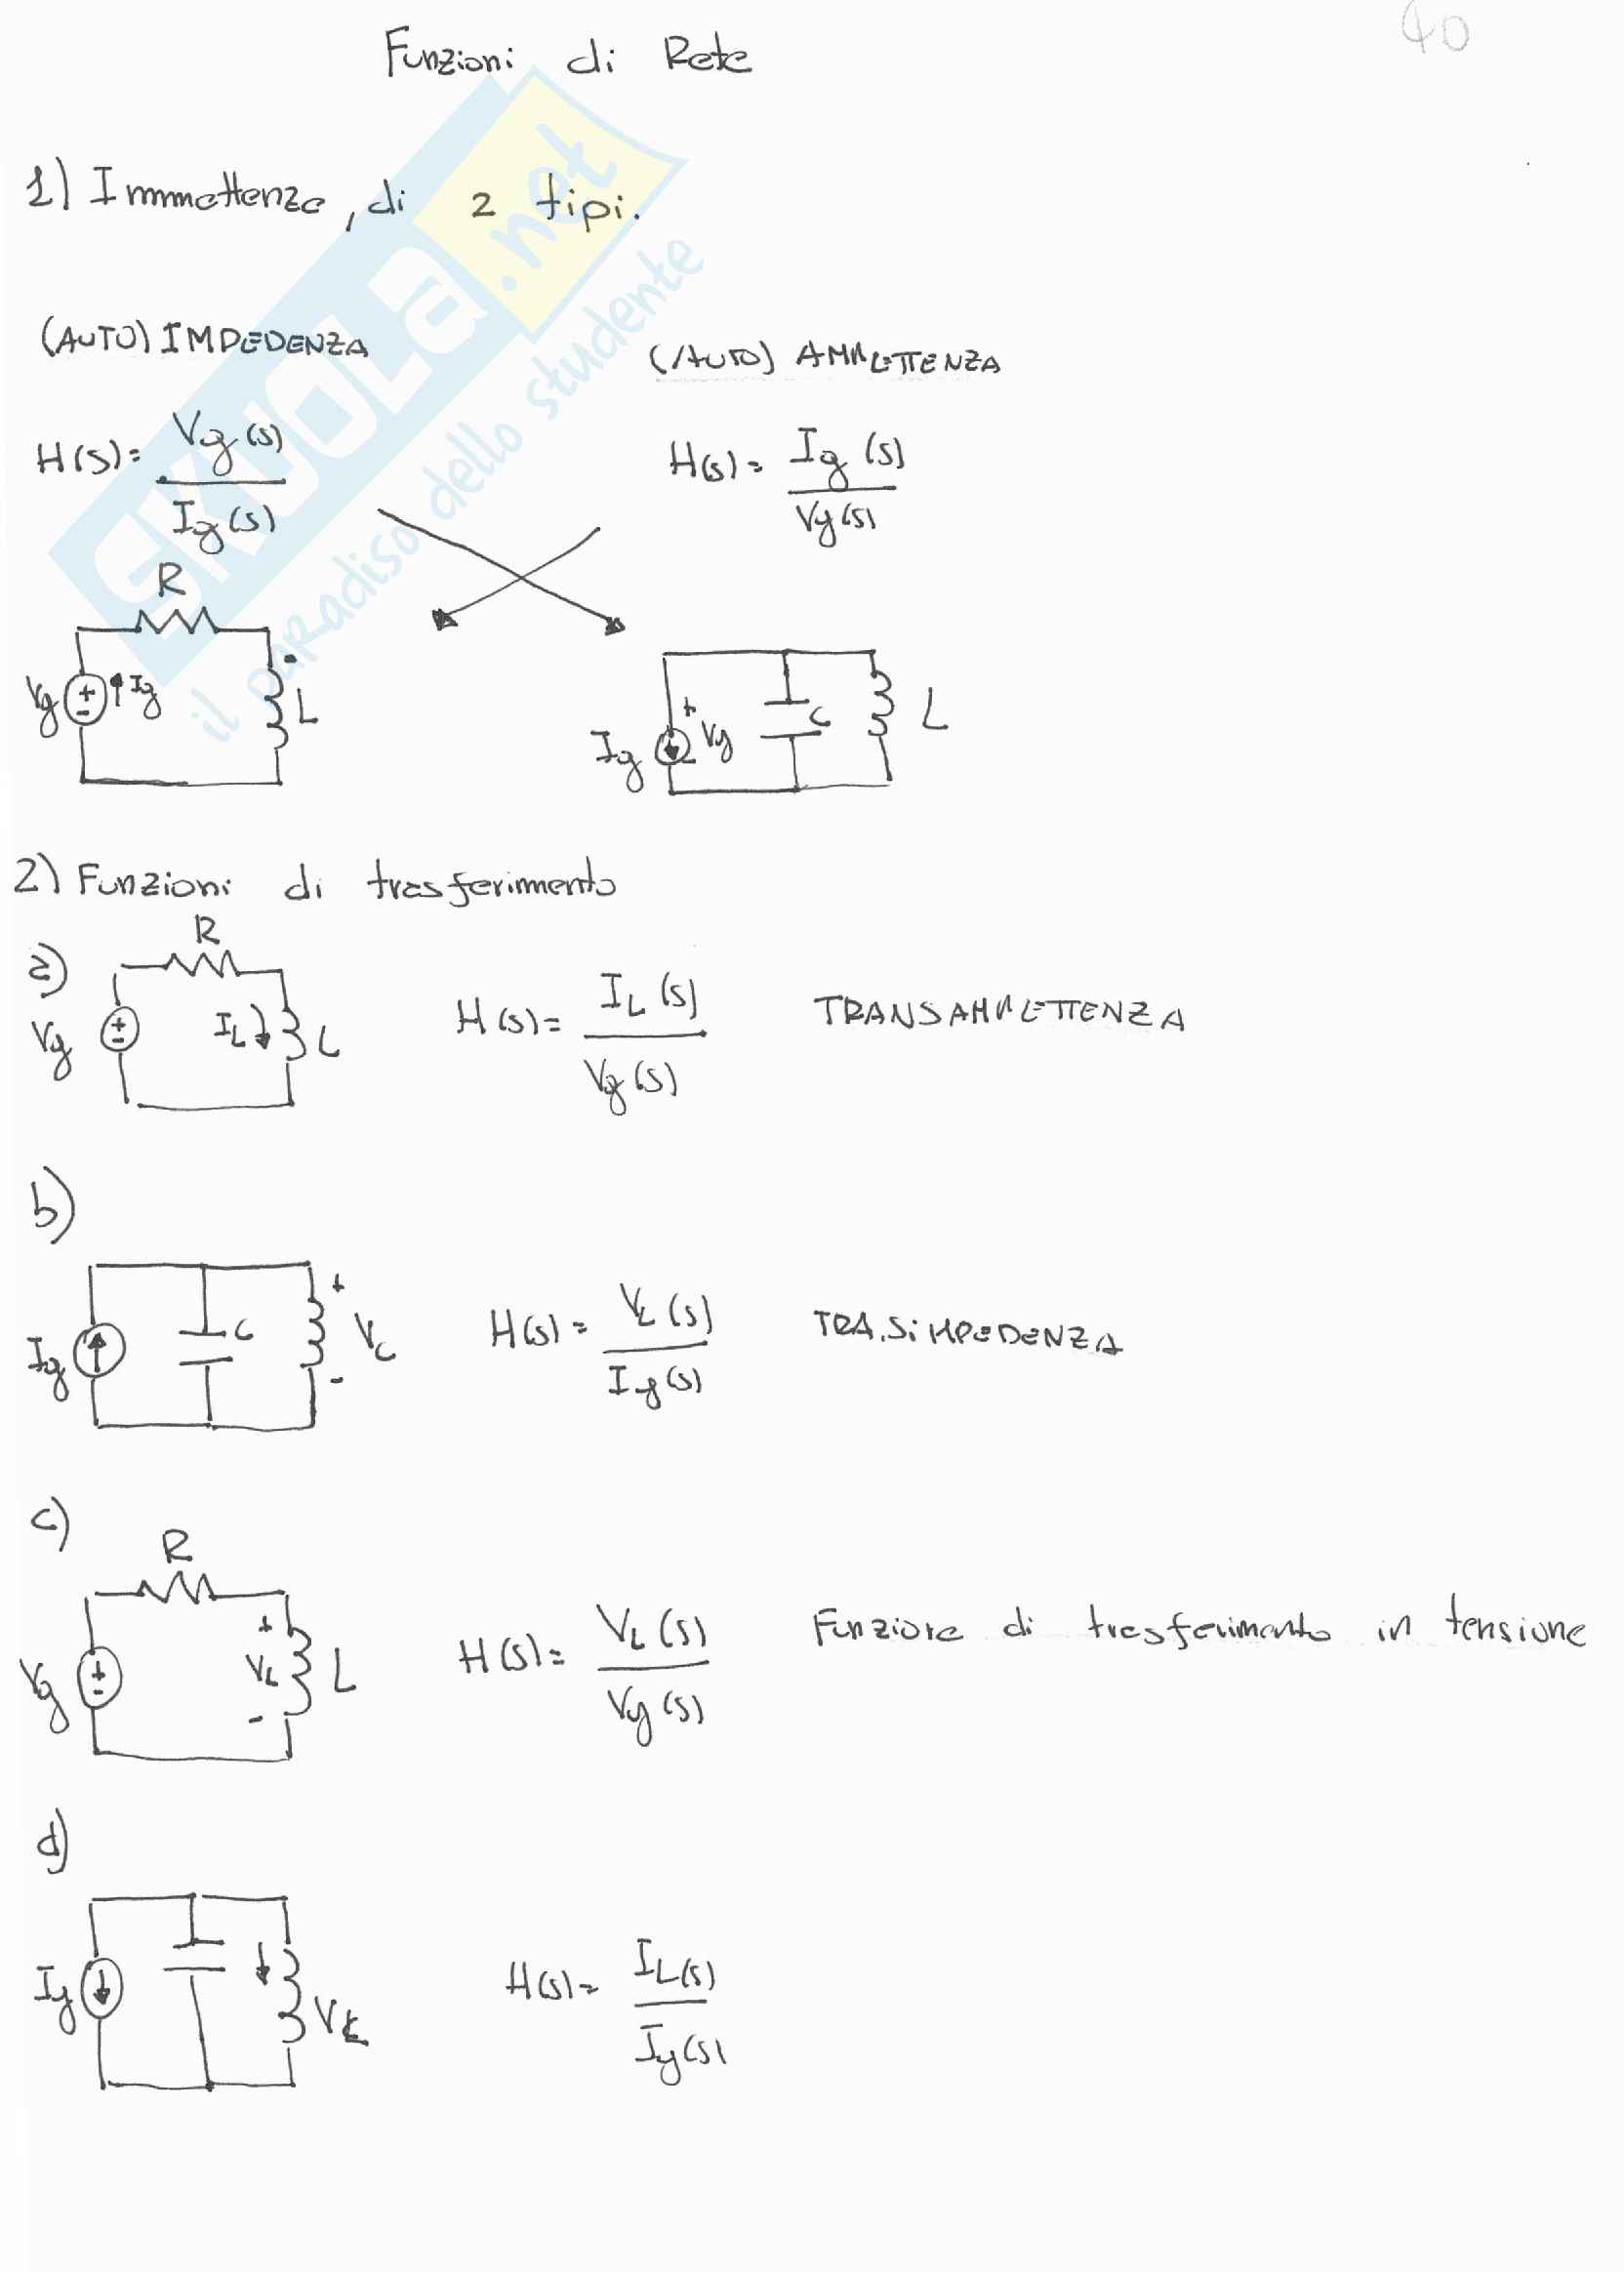 40
Funzioni di Rete
1) Immettenza, di 2 tipi.
(AUTO) IMPEDENZA
(AUTO) AMMETTENZA
H(s) = Vg(s) / Ig(s)
H(s) = Ig(s) / Vg(s)
R
Vg + - Ig L
Ig + - Vg C L
2) Funzioni di trasferimento
a)
R
Vg + - IL L
H(s) = IL(s) / Vg(s)
TRANSAMMETTENZA
b)
Ig C + VC -
H(s) = VL(s) / Ig(s)
TRANSIMPEDENZA
c)
R
Vg + - + VL - L
H(s) = VL(s) / Vg(s)
Funzione di trasferimento in tensione
d)
Ig VL
H(s) = IL(s) / Ig(s)
SKUOLa.net
il paRadiso dello studente